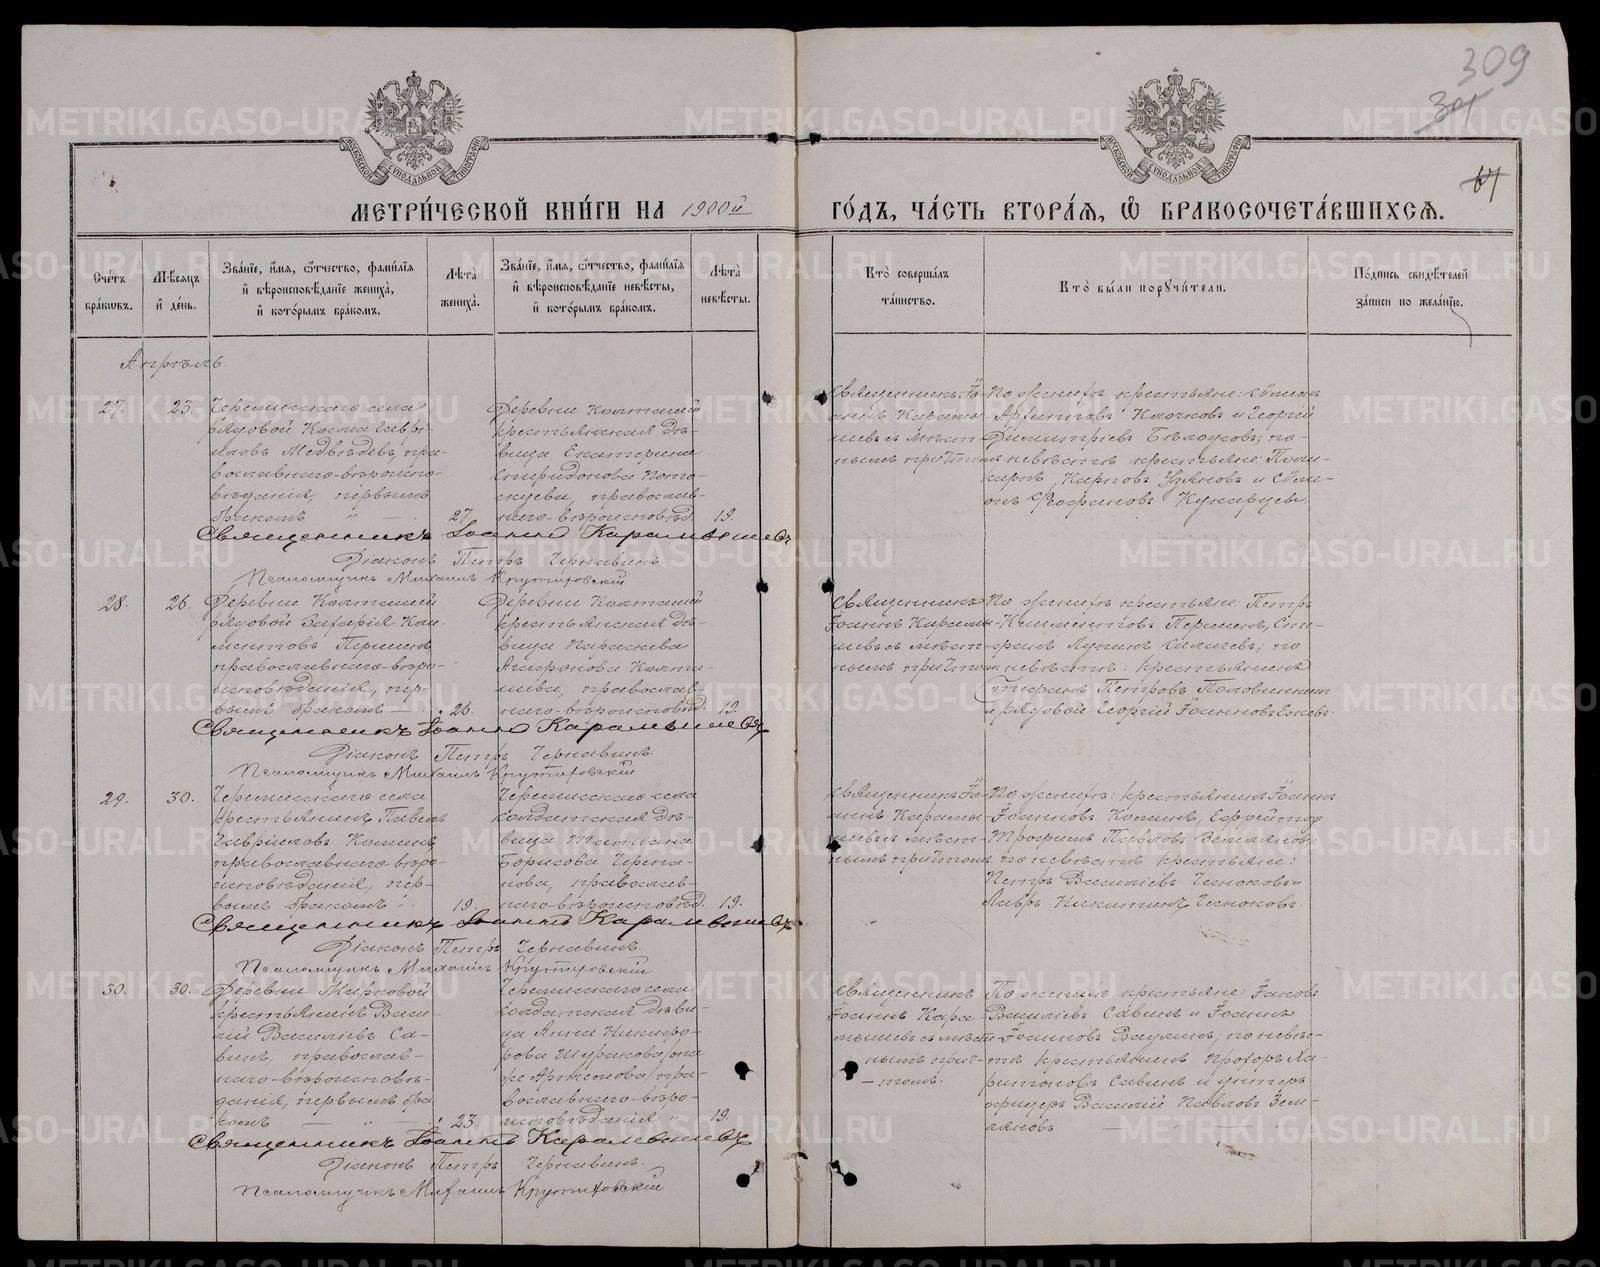 309
34
61
МЕТРИ́ЧЕСКОЙ КНИ́ГИ НА 1900й ГО́ДЪ, ЧА́СТЬ ВТОРА́Я, Ѿ БРАКОСОЧЕТА́ВШИХСЯ.
Сче́тъ бра́ковъ.
Мѣ́сяцъ и де́нь.
Зва́нїе, и́мя, ѻ҆́тчество, фами́лїя и҆ вѣроисповѣ́данїе жениха̀, и҆ кото́рымъ бра́комъ.
Лѣ́та жениха̀.
Зва́нїе, и́мя, ѻ҆́тчество, фами́лїя и҆ вѣроисповѣ́данїе невѣ́сты, и҆ кото́рымъ бра́комъ.
Лѣ́та невѣ́сты.
Кто̀ соверша́лъ та́инство.
Кто̀ бы́ли порꙋчи́тели.
По́дпись свидѣ́телей за́писи по жела́нїю.
Апрѣль.
27. 23.
Черемисскаго села
рядовой Косма Гаврі-
иловъ Медвѣдевъ, пра-
вославнаго-вѣроиспо-
вѣданія, первымъ
бракомъ 27.
Деревни Колташей
крестьянская дѣ-
вица Екатерина
Спиридонова Пото-
скуева, православ-
наго-вѣроисповѣд. 19.
Священникъ Іо-
аннъ Карамы-
шевъ съ мѣст-
нымъ причтомъ
По женихѣ крестьяне: Симеонъ
Клочковъ и Георгій
Димитріевъ Бѣлоусовъ; по
невѣстѣ крестьяне: Поли-
карпъ Карповъ и Симе-
онъ
Священникъ Іоаннъ Карамышевъ
Діаконъ Петръ Чернавинъ.
Псаломщикъ Михаилъ Крутиховскій
28. 26.
Деревни Колташей
рядовой Захарія Кли-
ментовъ Першинъ
православнаго-вѣро-
исповѣданія, пер-
вымъ бракомъ 26.
Деревни Колташей
крестьянская дѣ-
вица Параскева
Агафонова Колта-
шева, православ-
наго-вѣроисповѣд. 19.
Священникъ
Іоаннъ Карамы-
шевъ съ мѣст-
нымъ причтомъ
По женихѣ крестьяне: Петръ
Климентовъ Першинъ, Сте-
фанъ Лукинъ; по
невѣстѣ: крестьянинъ
Стефанъ Петровъ Половинкинъ
и рядовой Георгій Іоанновъ Ежевъ.
Священникъ Іоаннъ Карамышевъ
Діаконъ Петръ Чернавинъ.
Псаломщикъ Михаилъ Крутиховскій
29. 30.
Черемисскаго села
крестьянинъ Павелъ
Гавріиловъ Коминъ
православнаго-вѣро-
исповѣданія, пер-
вымъ бракомъ 19.
Черемисскаго села
солдатская дѣ-
вица Татіана
Борисова Черепа-
нова, православ-
наго-вѣроисповѣд. 19.
Священникъ Іо-
аннъ Карамы-
шевъ съ мѣст-
нымъ причтомъ
По женихѣ: крестьянинъ Іоаннъ
Іоанновъ Коминъ, Ефрейторъ
Трофимъ Павловъ Земляновъ;
по невѣстѣ крестьяне:
Петръ Василіевъ Чесноковъ и
Лавръ Никитинъ Чесноковъ.
Священникъ Іоаннъ Карамышевъ
Діаконъ Петръ Чернавинъ.
Псаломщикъ Михаилъ Крутиховскій
30. 30.
Деревни Мирковой
крестьянинъ Васи-
лій Василіевъ Са-
винъ, православ-
наго-вѣроисповѣ-
данія, первымъ бра-
комъ 23.
Черемисскаго села
солдатская дѣви-
ца Анна Никифо-
рова Шуракова она
же Артемова пра-
вославнаго-вѣро-
исповѣданія 19.
Священникъ
Іоаннъ Кара-
мышевъ съ мѣст-
нымъ прич-
томъ.
По женихѣ крестьяне: Іаковъ
Василіевъ Савинъ и Іоаннъ
Іоанновъ Ваулинъ; по невѣ-
стѣ крестьянинъ Прохоръ Ха-
ритоновъ Савинъ и унтеръ
офицеръ Василій Павловъ Зем-
ляновъ
Священникъ Іоаннъ Карамышевъ
Діаконъ Петръ Чернавинъ.
Псаломщикъ Михаилъ Крутиховскій
METRIKI.GASO-URAL.RU